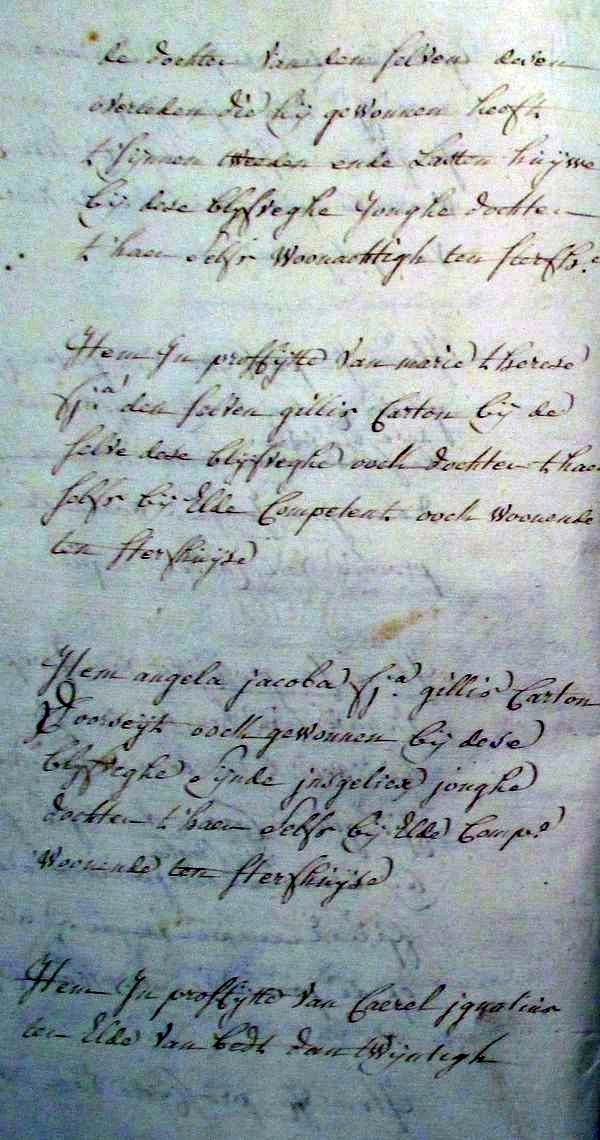 de dochter van den selven desen
overleden die hij gewonnen heeft
t'sijnnen tweeden ende Lasten huijwe
bij dese blijfveghe Jonghe dochter
t'haer selfs woonachtigh ten sterfh.e
Item In proffijtte van marie therese
f.a den selven gillis Carton bij de
selve dese blijfveghe ooch dochter t'haer
selfs bij Elde Competent ooch woonende
ten sterfhuijse
Item angela jacoba f.a gillis Carton
Voorseijt ooch gewonnen bij dese
blijfveghe sijnde insgeliex jonghe
dochter t'haer selfs bij Elde Comp.e
woonende ten sterfhuijse
Item In proffijtte van Caerel ignatius
ter Elde van bedt dan twijntigh